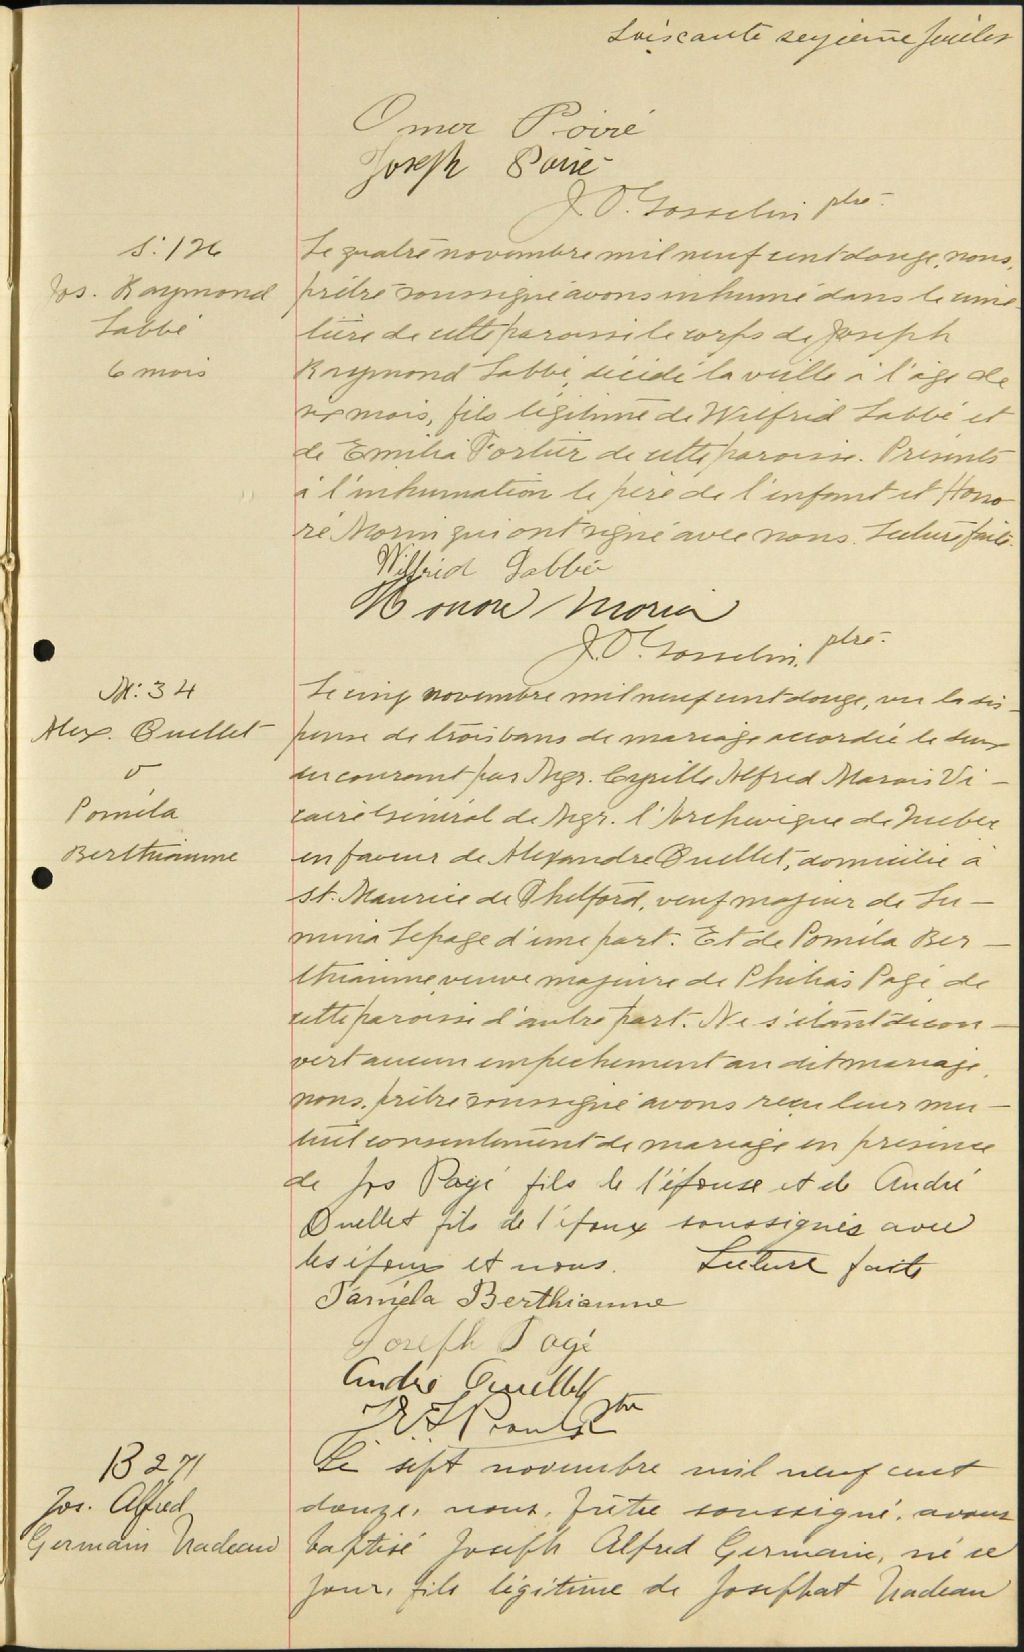 Soixante seizième feuillet
Omer Poiré
Joseph Poiré
J. O. Gosselin ptre.
S: 126
Jos. Raymond
Labbé
6 mois
Le quatre novembre mil neuf cent douze, nous,
prêtre soussigné avons inhumé dans le cime-
tière de cette paroisse le corps de Joseph
Raymond Labbé, décédé la veille à l'âge de
six mois, fils légitime de Wilfrid Labbé et
de Emilia Fortier de cette paroisse. Présents
à l'inhumation le père de l'enfant et Hono
ré Morin qui ont signé avec nous. Lecture faite.
Wilfrid Labbé
Honoré Morin
J. O. Gosselin, ptre.
M: 34
Alex. Ouellet
&
Poméla
Berthiaume
Le cinq novembre mil neuf cent douze, vu la dis-
pense de trois bans de mariage accordée le deux
du courant par Mgr. Cyrille Alfred Marois Vi-
caire Général de Mgr. l'Archevêque de Québec
en faveur de Alexandre Ouellet, domicilié à
St. Maurice de Thetford, veuf majeur de Lu-
mina Lepage d'une part. Et de Poméla Ber-
thiaume veuve majeure de Philias Pagé de
cette paroisse d'autre part. Ne s'étant décou-
vert aucun empêchement au dit mariage,
nous, prêtre soussigné avons reçu leur mu-
tuel consentement de mariage en présence
de Jos Pagé fils de l'épouse et de André
Ouellet fils de l'époux soussignés avec
les époux et nous. Lecture faite
Paméla Berthiaume
Joseph Pagé
André Ouellet
ptre
B 271
Jos. Alfred
Germain Nadeau
Le sept novembre mil neuf cent
douze, nous, prêtre soussigné, avons
baptisé Joseph Alfred Germain, né ce
jour, fils légitime de Josephat Nadeau